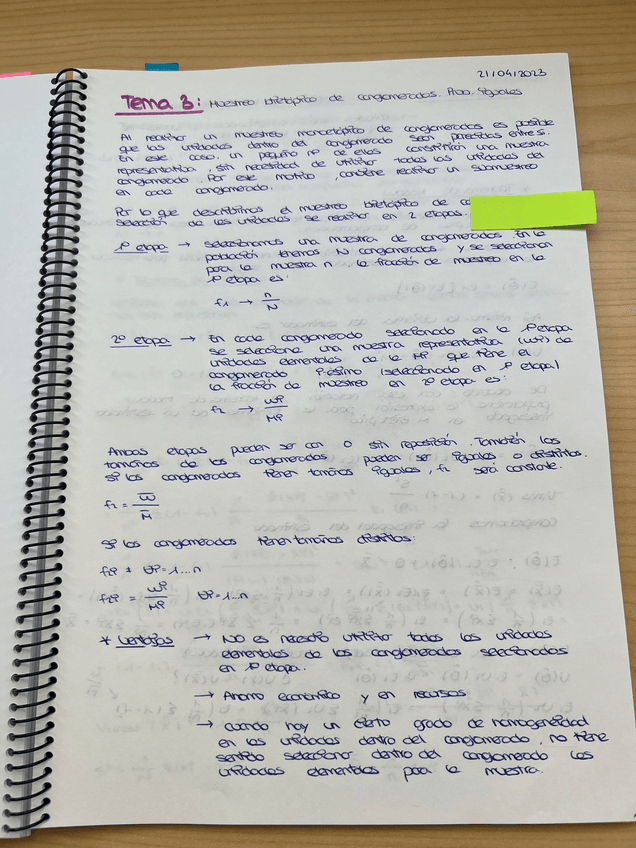 21/04/2023
Tema 3: Muestreo bietápico de conglomerados. Prob. iguales
Al realizar un muestreo monoetápico de conglomerados es posible
que las unidades dentro del conglomerado sean parecidas entre si.
En este caso, un pequeño nº de ellas constituirán una muestra
representativa, sin necesidad de utilizar todas las unidades del
conglomerado. Por este motivo, conviene realizar un submuestreo
en cada conglomerado.
Por lo que describimos el muestreo bietápico de
selección de las unidades se realiza en 2 etapas.
1ª etapa → Seleccionamos una muestra de conglomerados. En la
población tenemos N conglomerados y se seleccionan
para la muestra n. la fracción de muestreo en la
1ª etapa es:
f1 → n/N
2ª etapa → En cada conglomerado seleccionado en la 1ª etapa
se selecciona una muestra representativa (mi) de
unidades elementales de la Mi que tiene el
conglomerado i-ésimo (seleccionado en 1ª etapa)
la fracción de muestreo en 2ª etapa es:
f2 → mi/Mi
Ambas etapas pueden ser con o sin reposición. También, los
tamaños de los conglomerados pueden ser iguales o distintos.
Si los conglomerados tienen tamaños iguales, f2 será constante.
f2 = m̄/M̄
Si los conglomerados tienen tamaños distintos:
f2i ≠ ∀i=1...n
f2i = mi/Mi ∀i=1...n
* Ventajas → No es necesario utilizar todas las unidades
elementales de los conglomerados seleccionados
en 1ª etapa.
→ Ahorro económico y en recursos
→ Cuando hay un cierto grado de homogeneidad
en las unidades dentro del conglomerado, no tiene
sentido seleccionar dentro del conglomerado las
unidades elementales para la muestra.